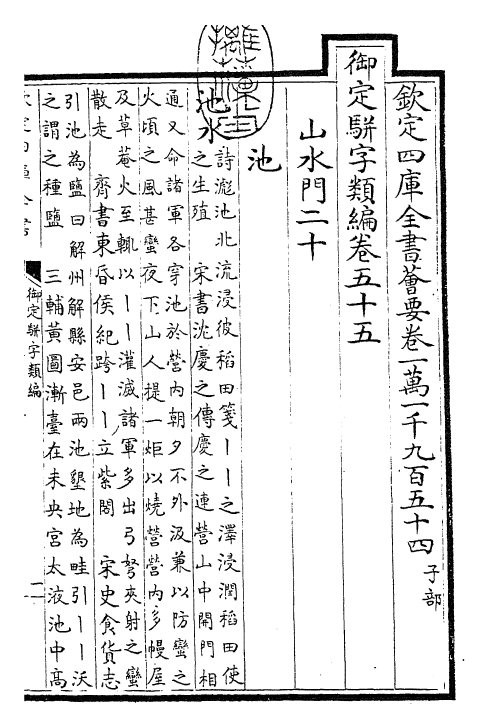 欽定四庫全書薈要卷一萬一千九百五十四 子部
御定駢字類編卷五十五
山水門二十
池
池水
詩滮池北流浸彼稻田箋丨丨之澤浸潤稻田使
之生殖 宋書沈慶之傳慶之連營山中開門相
通又命諸軍各穿池於營內朝夕不外汲兼以防蠻之
火頃之風甚蠻夜下山人提一炬以燒營營內多幔屋
及草菴火至輒以丨丨灌滅諸軍多出弓弩夾射之蠻
散走 齊書東昏侯紀跨丨丨立紫閣 宋史食貨志
引池為鹽曰解州解縣安邑兩池墾地為畦引丨丨沃
之謂之種鹽 三輔黃圖漸臺在未央宮太液池中高
御定駢字類編